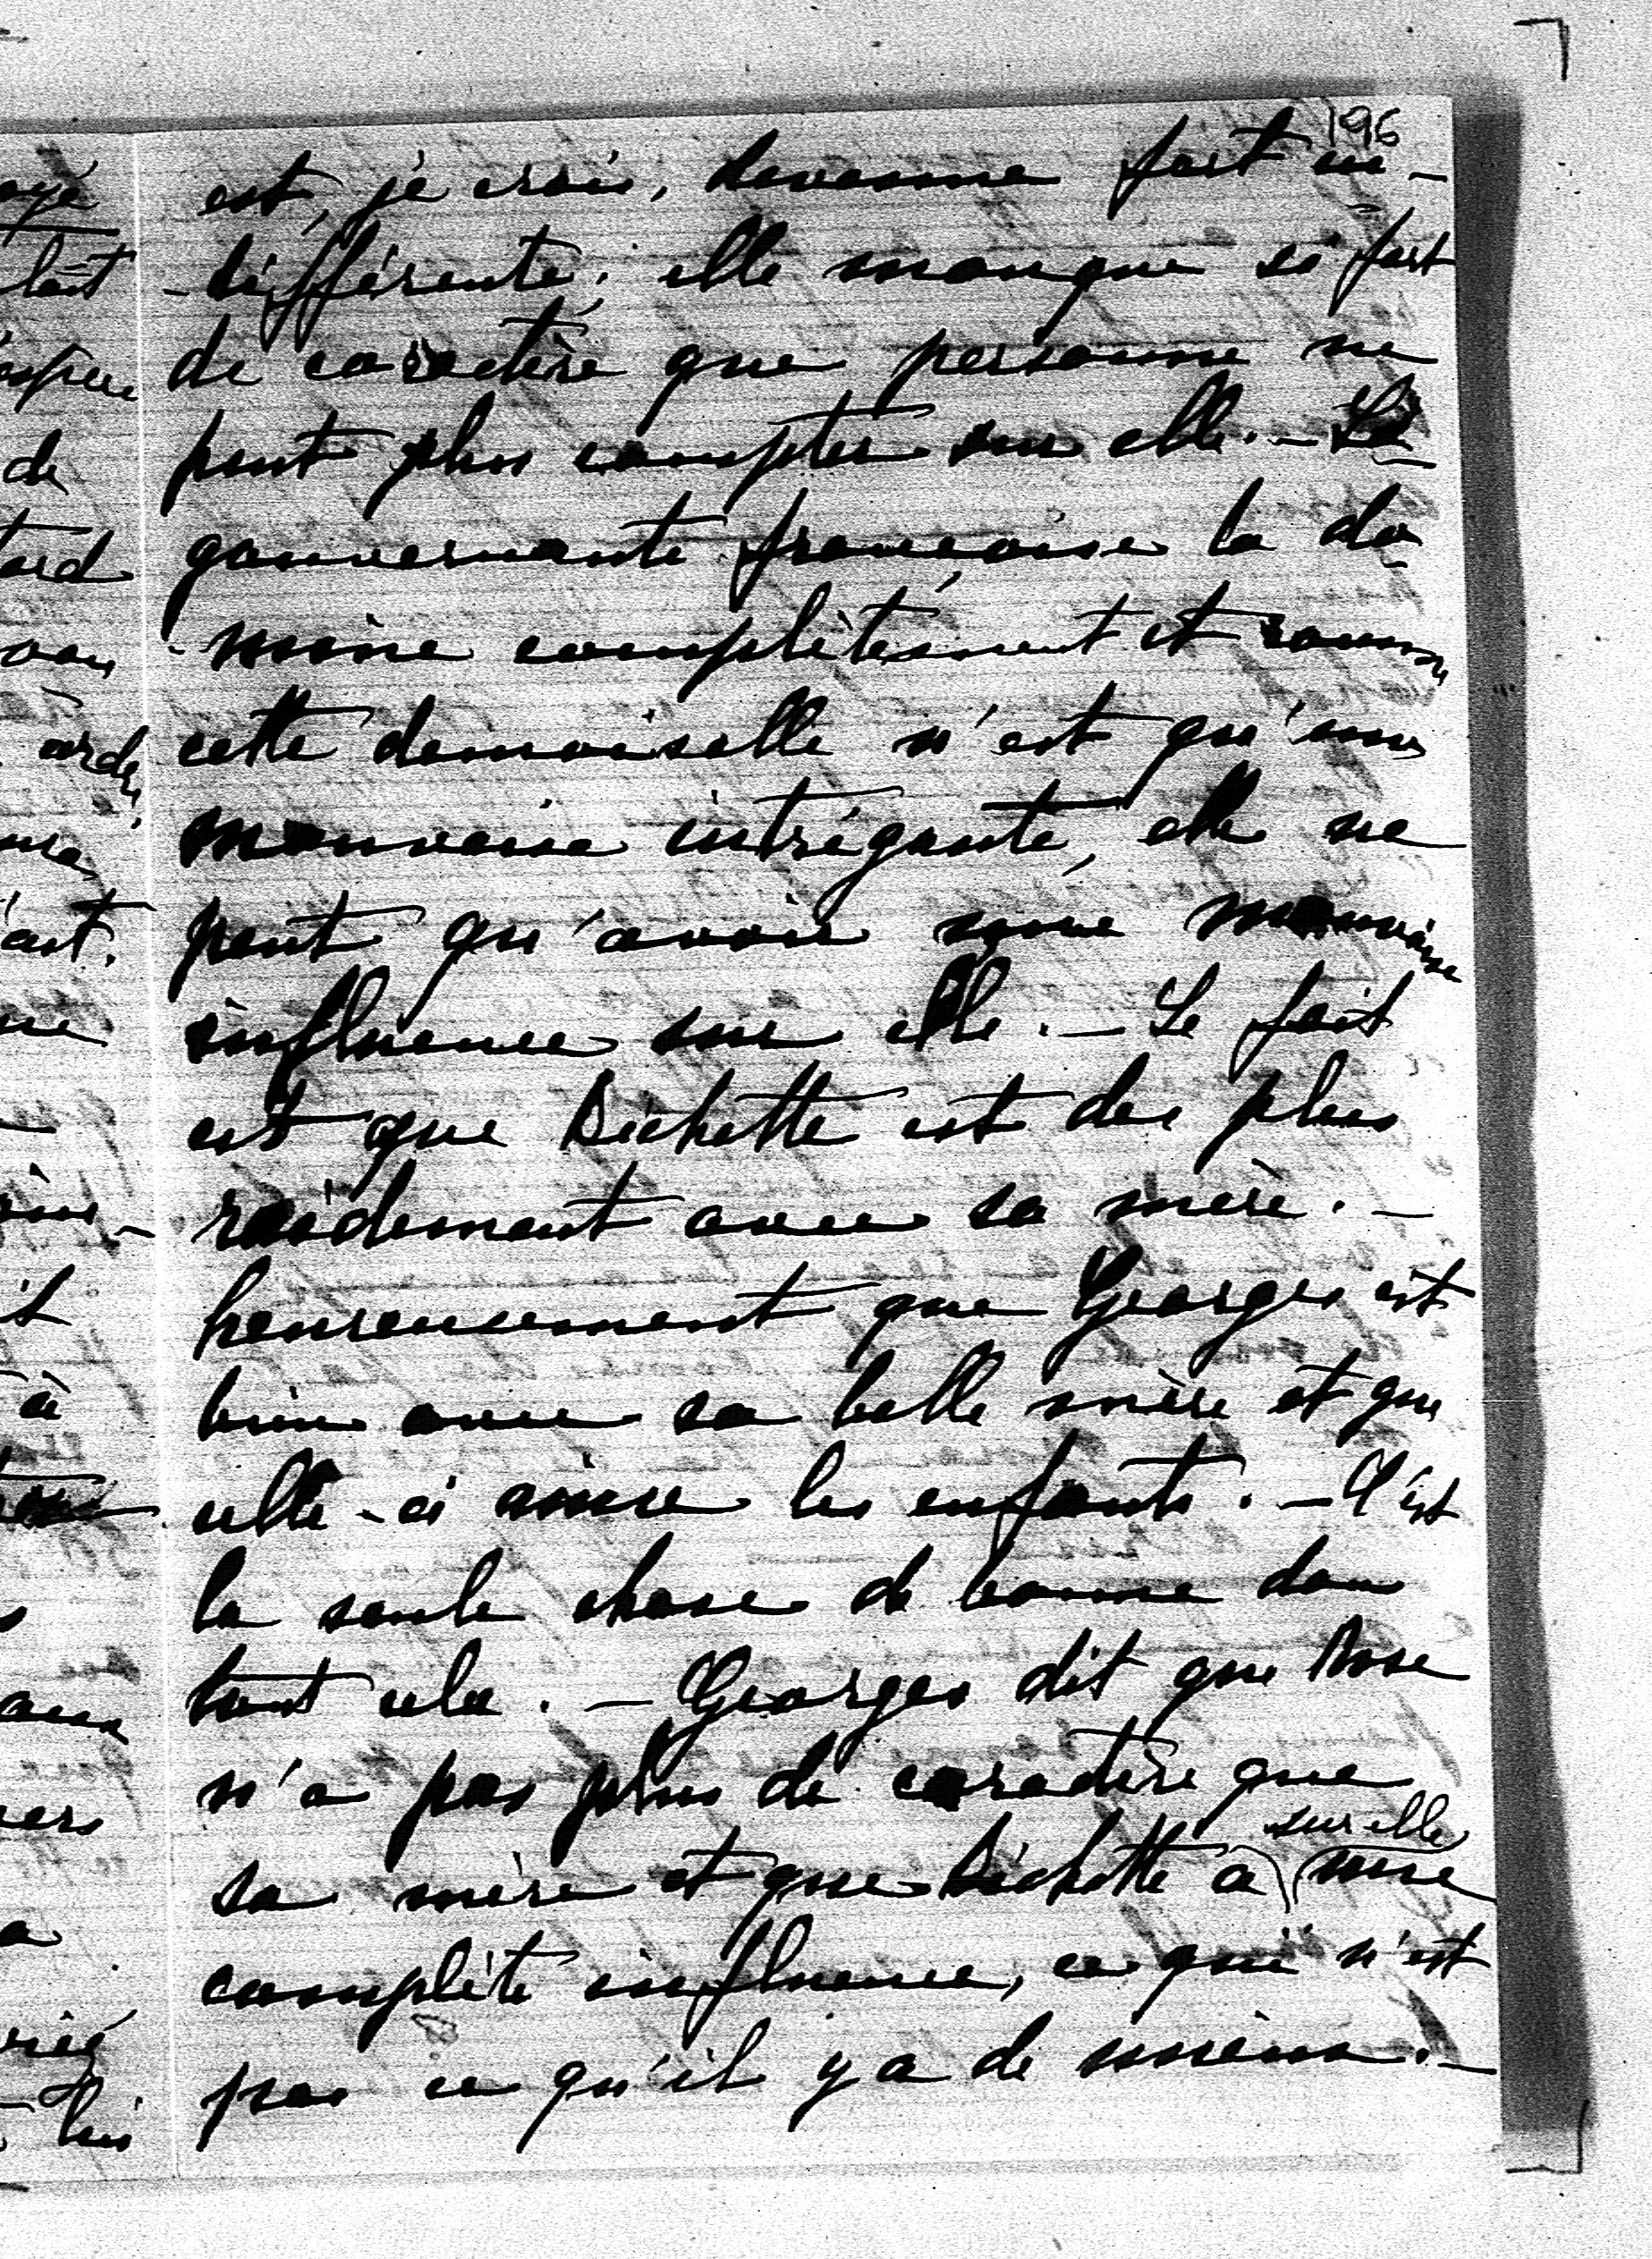 196
est, je crois, devenue fort in-
-différente; elle manque si fort
de caractère que personne ne
peut plus compter sur elle. - La
gouvernante française la do-
-mine complètement et comme
cette demoiselle n'est qu'une
mauvaise intrigante, elle ne
peut qu'avoir une mauvaise
influence sur elle. - Le fait
est que Bichette est des plus
raidement avec sa mère. -
heureusement que Georges est
bien avec sa belle mère et que
celle-ci aime les enfants. - C'est
la seule chose de bonne dans
tout cela. - Georges dit que Rose
n'a pas plus de caractère que
sa mère et que Bichette a sur elle une
complète influence, ce qui n'est
pas ce qu'il y a de mieux. -